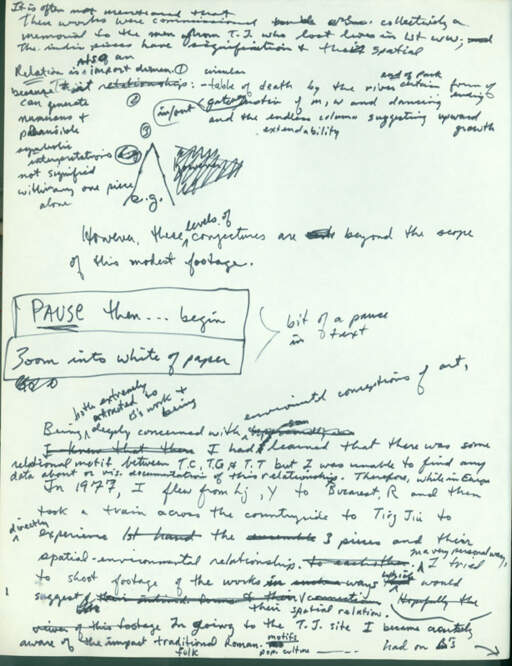 It is often not mentioned that
These works were commissioned collectively a
memorial to the men from T.J. who lost lives in 1st W.W.,
The indiv pieces have signification & their spatial
Relation is also an import dimen. ① circular
because relationship: - table of death by the river end of park
②
can generate in/out gate of m, w and dancing
numerous + ③ and the endless column suggesting upward
extendability growth
plausible
symbolic
interpretations however
not signified
within any one piece e.g.
alone
However, these levels of conjectures are beyond the scope
of this modest footage.
PAUSE then... begin
bit of a pause
in text
Zoom into white of paper
both extremely
attracted to
B's work +
being
Being deeply concerned with environmental conceptions of art,
I knew that there I had learned that there was some
relational motif between T.C., T.G & T.T but I was unable to find any
data about or vis. documentation of this relationships. Therefore, while in Europe
In 1977, I flew from Lj, Y to Bucarest, R and then
took a train across the countryside to Tirg Jiu to
directly
experience 1st hand the ensemble 3 pieces and their
spatial-environmental relationship. to each other. in a very personal way, I tried
to shoot footage of the works ways which would
suggest their spatial relation. Hopefully the
of this footage In going to the T.J. site I became acutely
aware of the impact traditional Roman. motifs had on B's
folk pop. culture
1